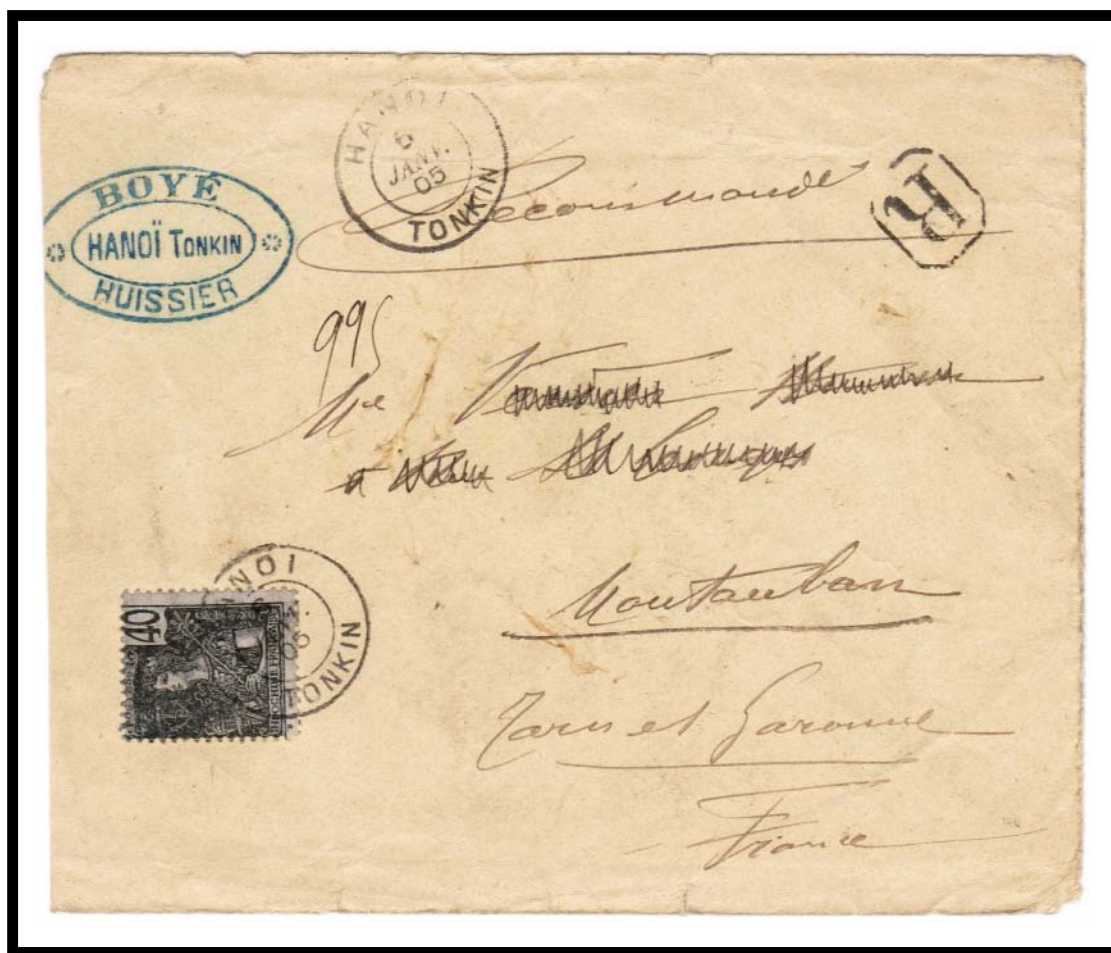 BOYÉ
HANOÏ TONKIN
HUISSIER
HANOI
6
JANV.
05
TONKIN
Recommandé
R
995
Me
Montauban
Tarn et Garonne
France
40
INDOCHINE FRANÇAISE
HANOI
05
TONKIN